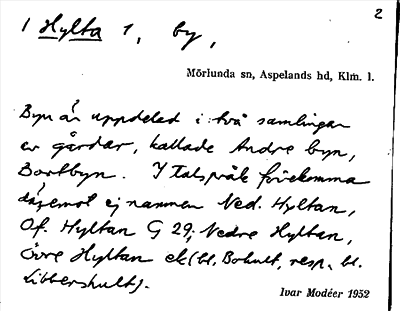 2
1 Hylta 1, by,
Mörlunda sn, Aspelands hd, Klm. l.
Byn är uppdelad i två samlingar
av gårdar, kallade Andre byn,
Bortbyn. I talspråk förekomma
däremot ej namnen Ned. Hyltan,
Öf. Hyltan G 29; Nedre Hyltan,
Övre Hyltan ek (bl. Bohult, resp. bl.
Libbershult).
Ivar Modéer 1952